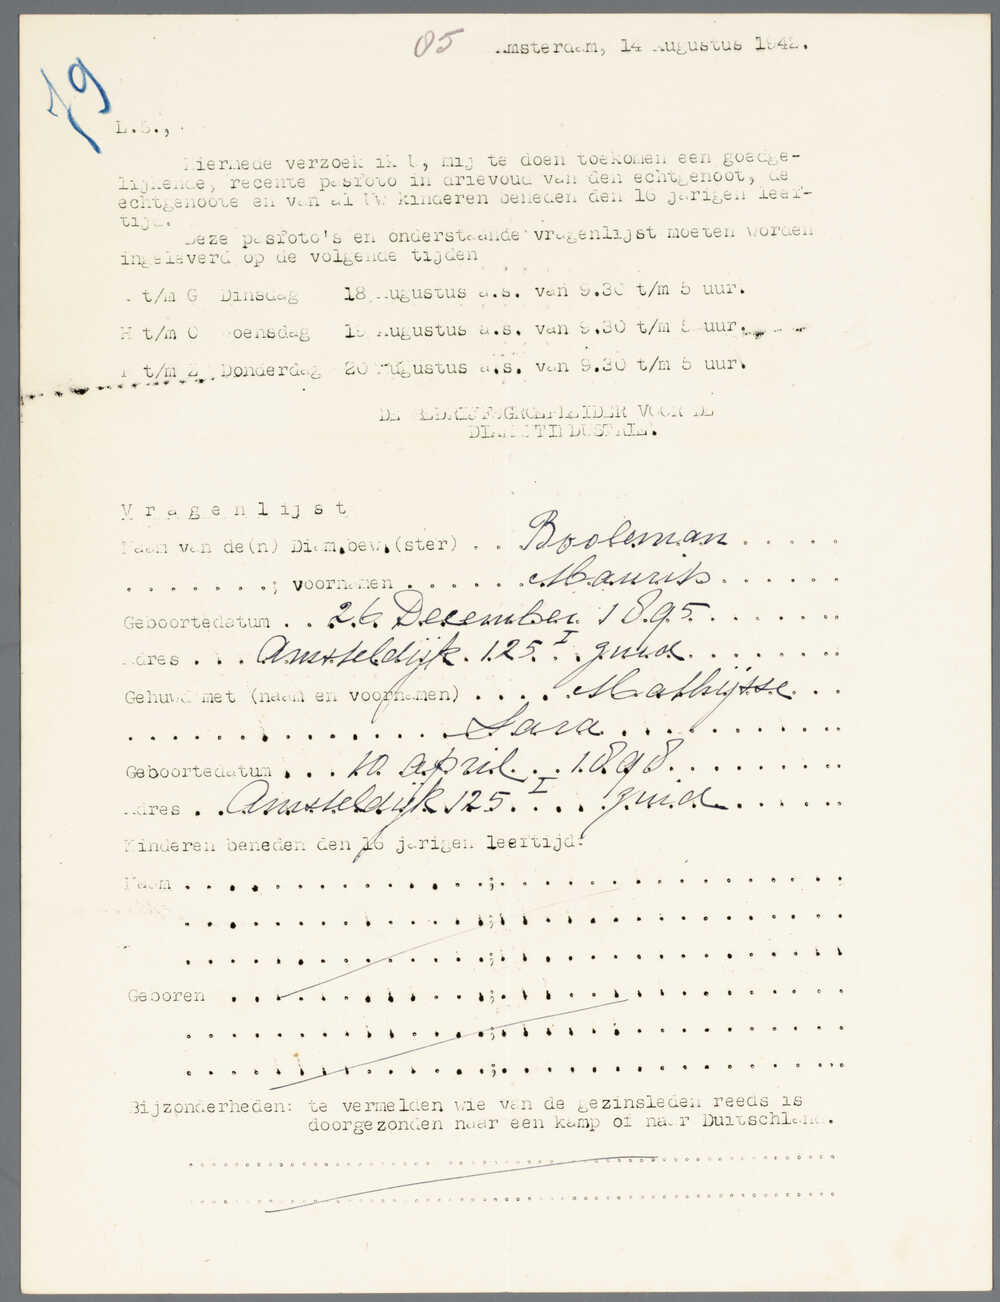 05 Amsterdam, 14 Augustus 1942.
79
L.S.,
Hiermede verzoek ik U, mij te doen toekomen een goedge-
lijkende, recente pasfoto in drievoud van den echtgenoot, de
echtgenoote en van al Uw kinderen beneden den 16 jarigen leef-
tijd.
Deze pasfoto's en onderstaande vragenlijst moeten worden
ingeleverd op de volgende tijden
t/m G Dinsdag 18 Augustus a.s. van 9.30 t/m 5 uur.
H t/m O Woensdag 19 Augustus a.s. van 9.30 t/m 5 uur.
P t/m Z Donderdag 20 Augustus a.s. van 9.30 t/m 5 uur.
DE BEDRIJFSGROEPLEIDER VOOR DE
DIAMANTINDUSTRIE.
Vragenlijst
Naam van de(n) Diam.bew.(ster) . . Booleman . . . . .
. . . . . . . ; voornamen . . . . . Maurits . . . . . .
Geboortedatum . . . 26 December 1895 . . . . . .
Adres . . . Amsteldijk 125 I zuid . . . . . . .
Gehuwd met (naam en voornamen) . . . . Mathijsse . .
. . . . . . . . . . . . . . . Sara . . . . . . . . . . .
Geboortedatum . . . 10 April . . . 1898 . . . . . . .
Adres . . Amsteldijk 125 I . . . . zuid . . . . . .
Kinderen beneden den 16 jarigen leeftijd:
Naam . . . . . . . . . . . . . . ; . . . . . . . . . . . . . . .
. . . . . . . . . . . . . . ; . . . . . . . . . . . . . . .
. . . . . . . . . . . . . . ; . . . . . . . . . . . . . . .
Geboren . . . . . . . . . . . . ; . . . . . . . . . . . . . . .
. . . . . . . . . . . . . . ; . . . . . . . . . . . . . . .
. . . . . . . . . . . . . . ; . . . . . . . . . . . . . . .
Bijzonderheden: te vermelden wie van de gezinsleden reeds is
doorgezonden naar een kamp of naar Duitschland.